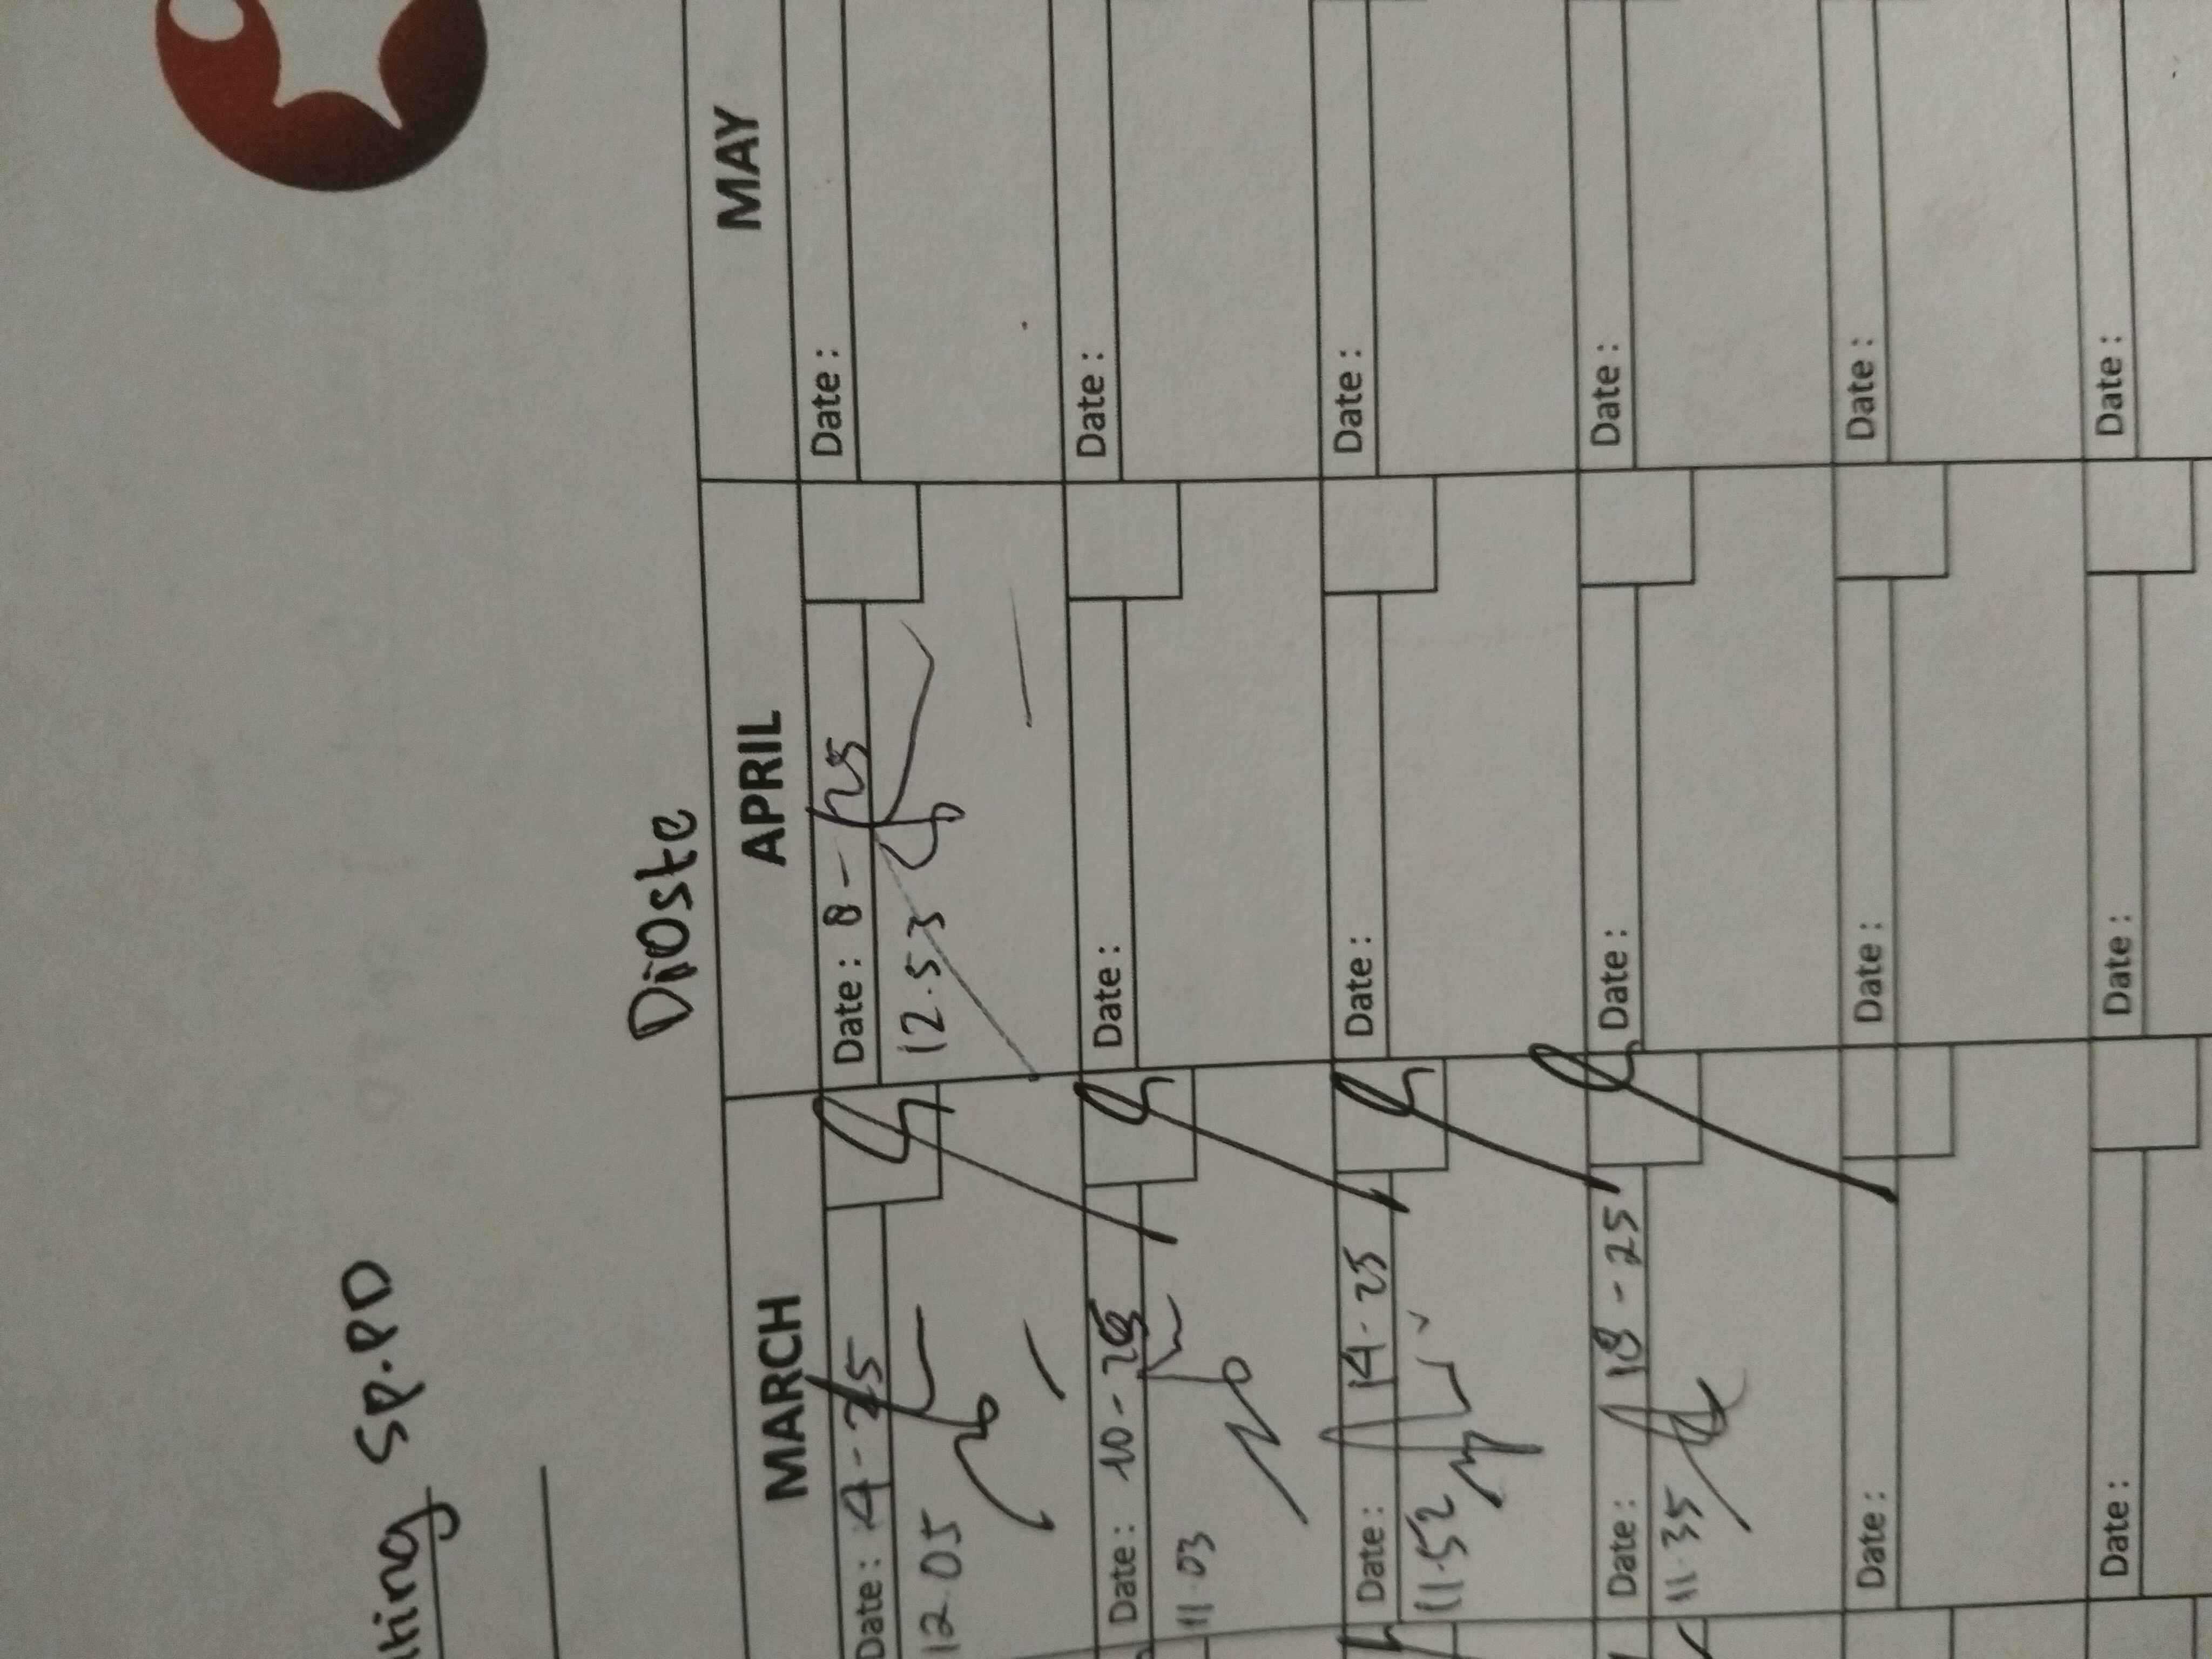 Sp.PD
Dioste
MARCH APRIL MAY
Date : 4-25 Date : 8-25 Date :
12.05 12.53
Date : 10-25 Date : Date :
11.03
Date : 14-25 Date : Date :
11.52
Date : 18-25 Date : Date :
11.35
Date : Date : Date :
Date : Date : Date :